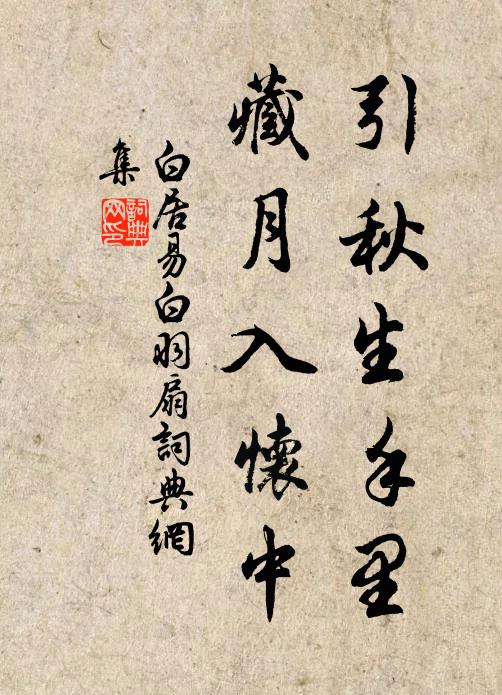 引秋生手里
藏月入懷中
白居易白羽扇詞典網
集
詞典網印